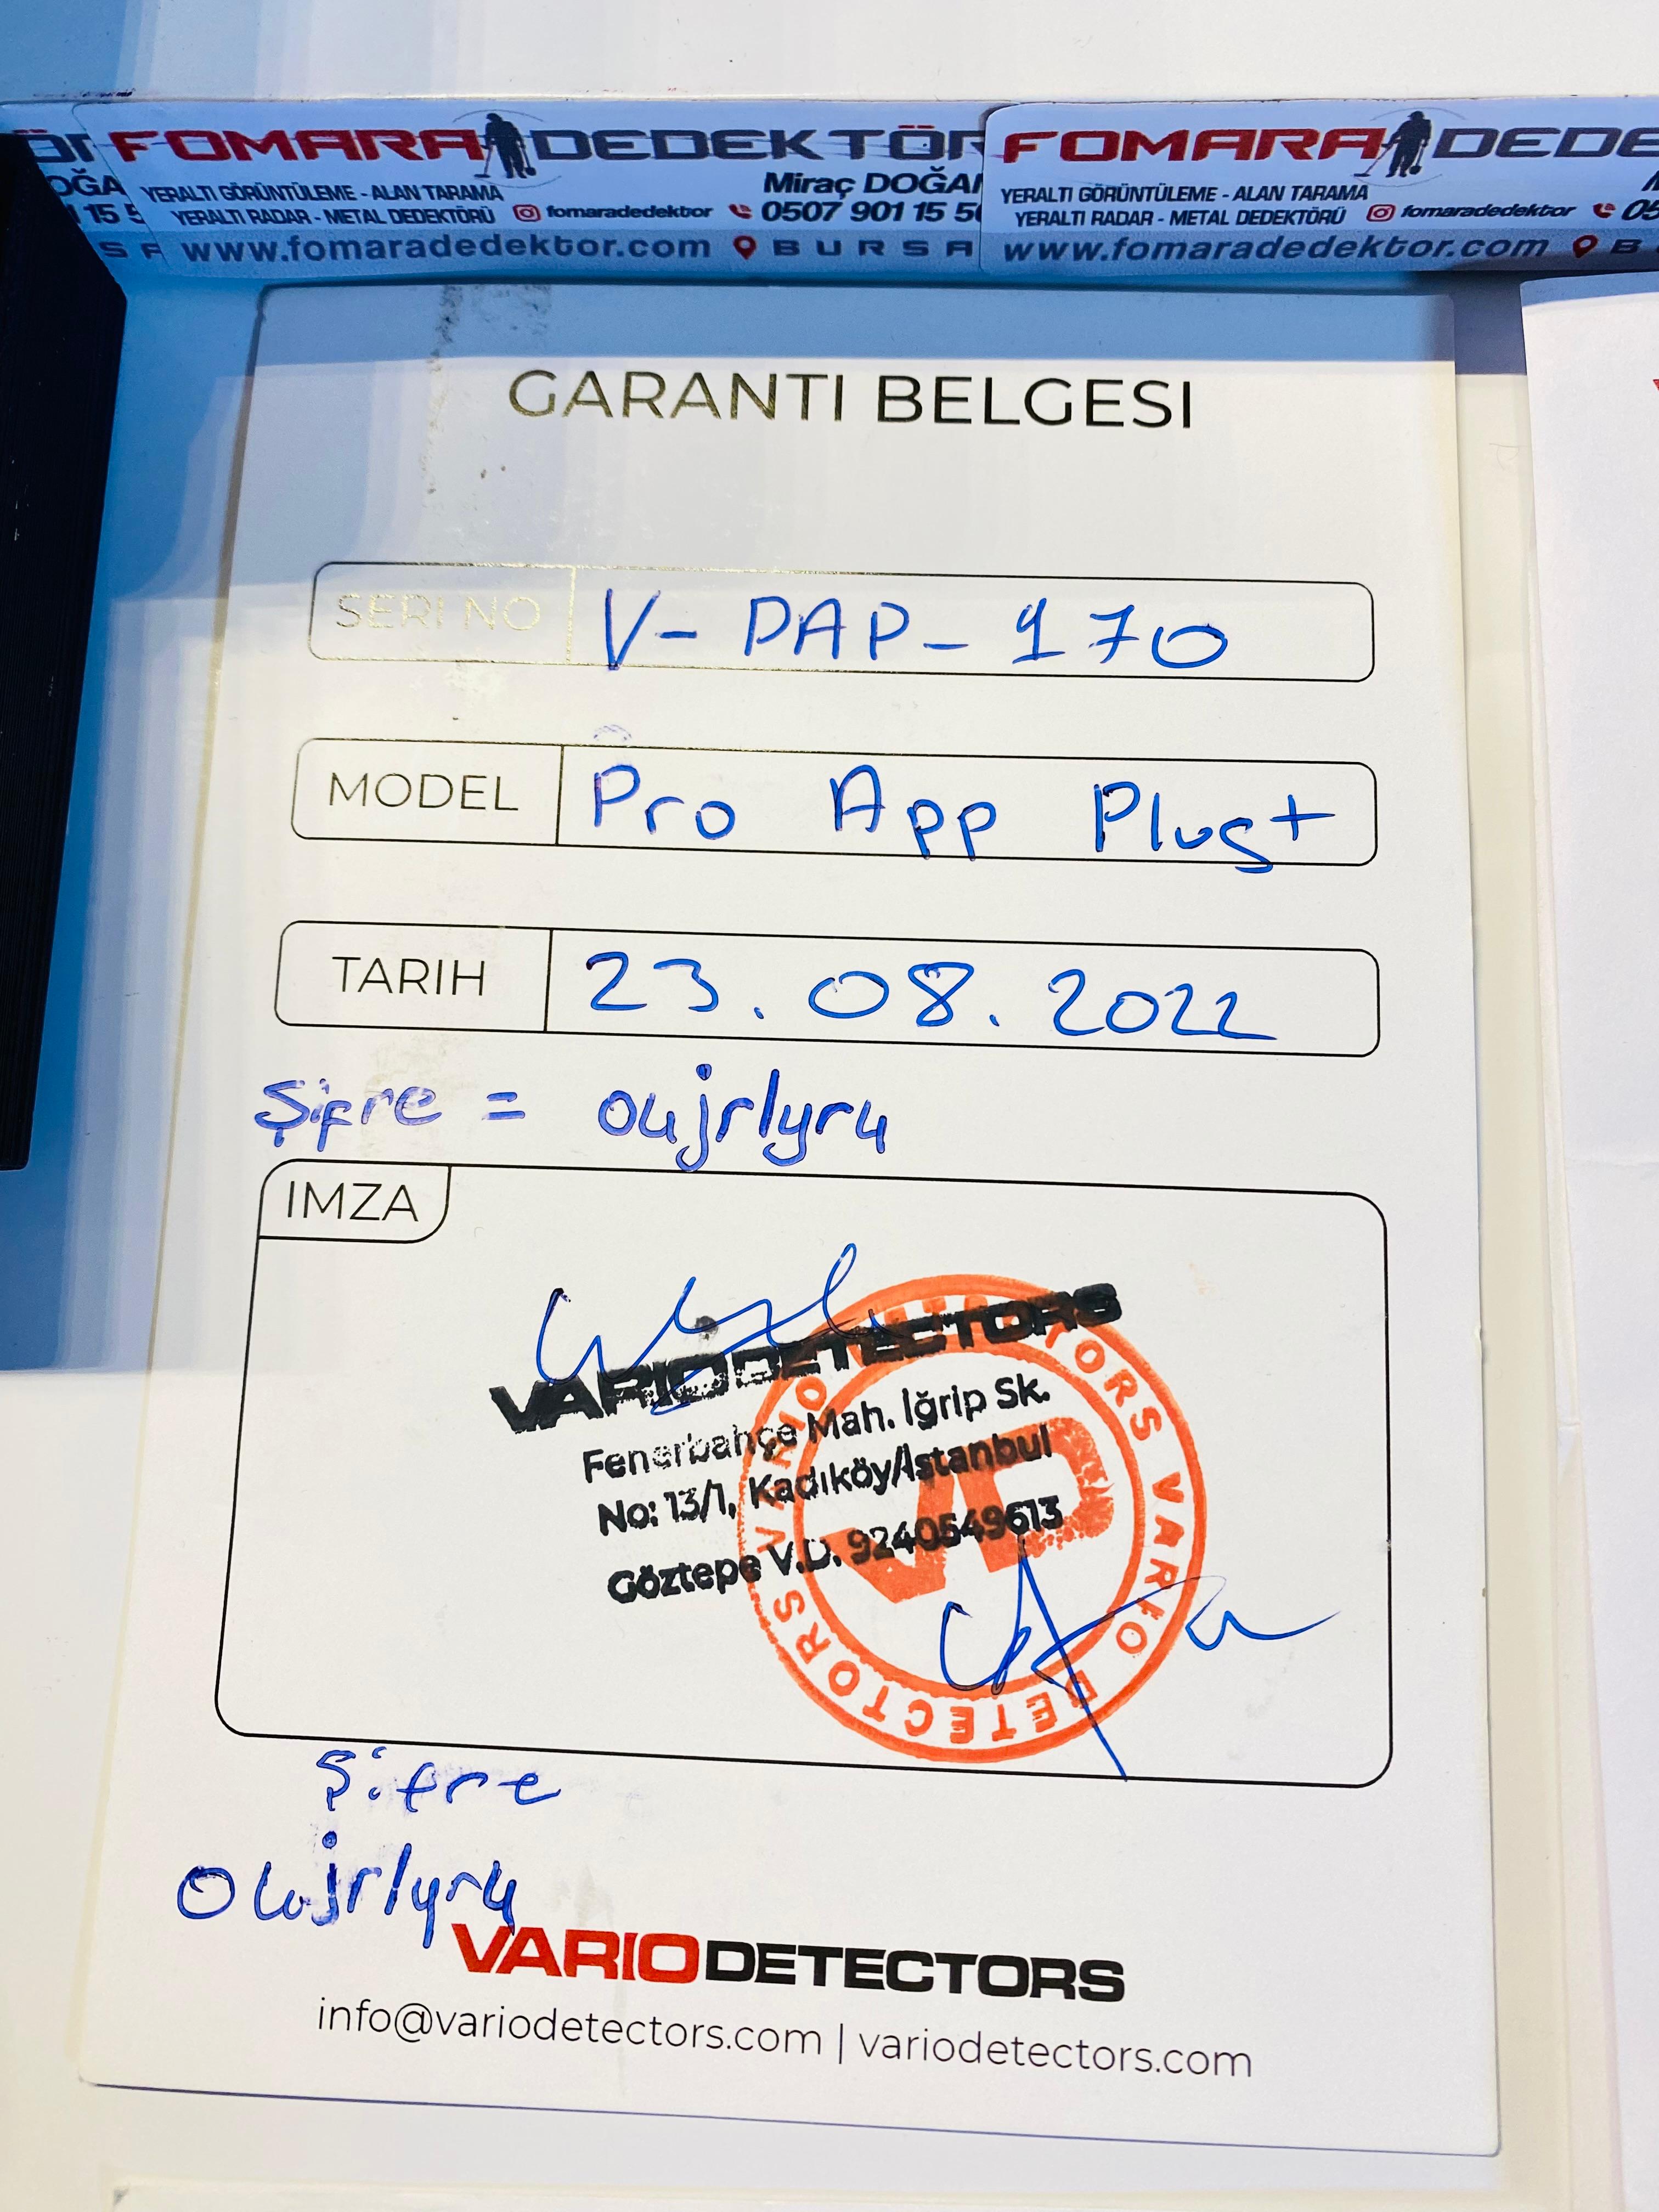 FOMARA DEDEKTÖR
YERALTI GÖRÜNTÜLEME - ALAN TARAMA
Miraç DOĞAN
YERALTI RADAR - METAL DEDEKTÖRÜ fomaradedektor 0507 901 15 5
www.fomaradedektor.com BURSA
FOMARA DEDE
YERALTI GÖRÜNTÜLEME - ALAN TARAMA
YERALTI RADAR - METAL DEDEKTÖRÜ fomaradedektor 05
www.fomaradedektor.com B
GARANTI BELGESI
SERI NO V-PAP-170
MODEL Pro App Plus+
TARIH 23.08.2022
Şifre = oujrlyru
IMZA
VARIO DETECTORS
Fenerbahçe Mah. Iğrip Sk.
No: 13/1, Kadıköy/İstanbul
Göztepe V.D. 9240549613
VARIO DETECTORS VARIO DETECTORS
VD
Şifre
oujrlyru
VARIO DETECTORS
info@variodetectors.com | variodetectors.com